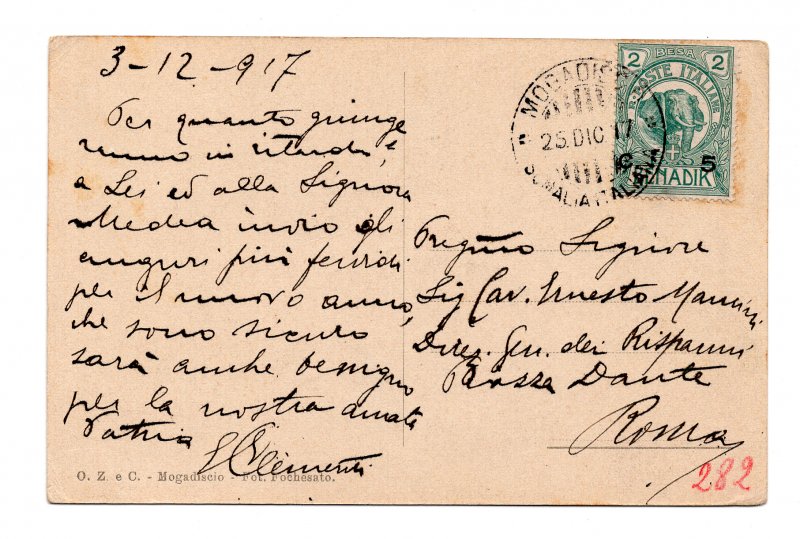 3-12-917
Per quanto giunge
ranno in ritardo
a Lei ed alla Signora
Medea invio gli
auguri più fervidi
per il nuovo anno,
che sono sicuro
sarà anche benigno
per la nostra amata
Patria
Clementi
O. Z. e C. - Mogadiscio - Fot. Fochesato.
2 BESA 2
POSTE ITALIANE
C. 5
BENADIR
MOGADISCIO
25.DIC.17
SOMALIA ITALIANA
Pregmo Signore
Sig Cav. Ernesto Mancini
Direz. Gen. dei Risparmi
Piazza Dante
Roma
282